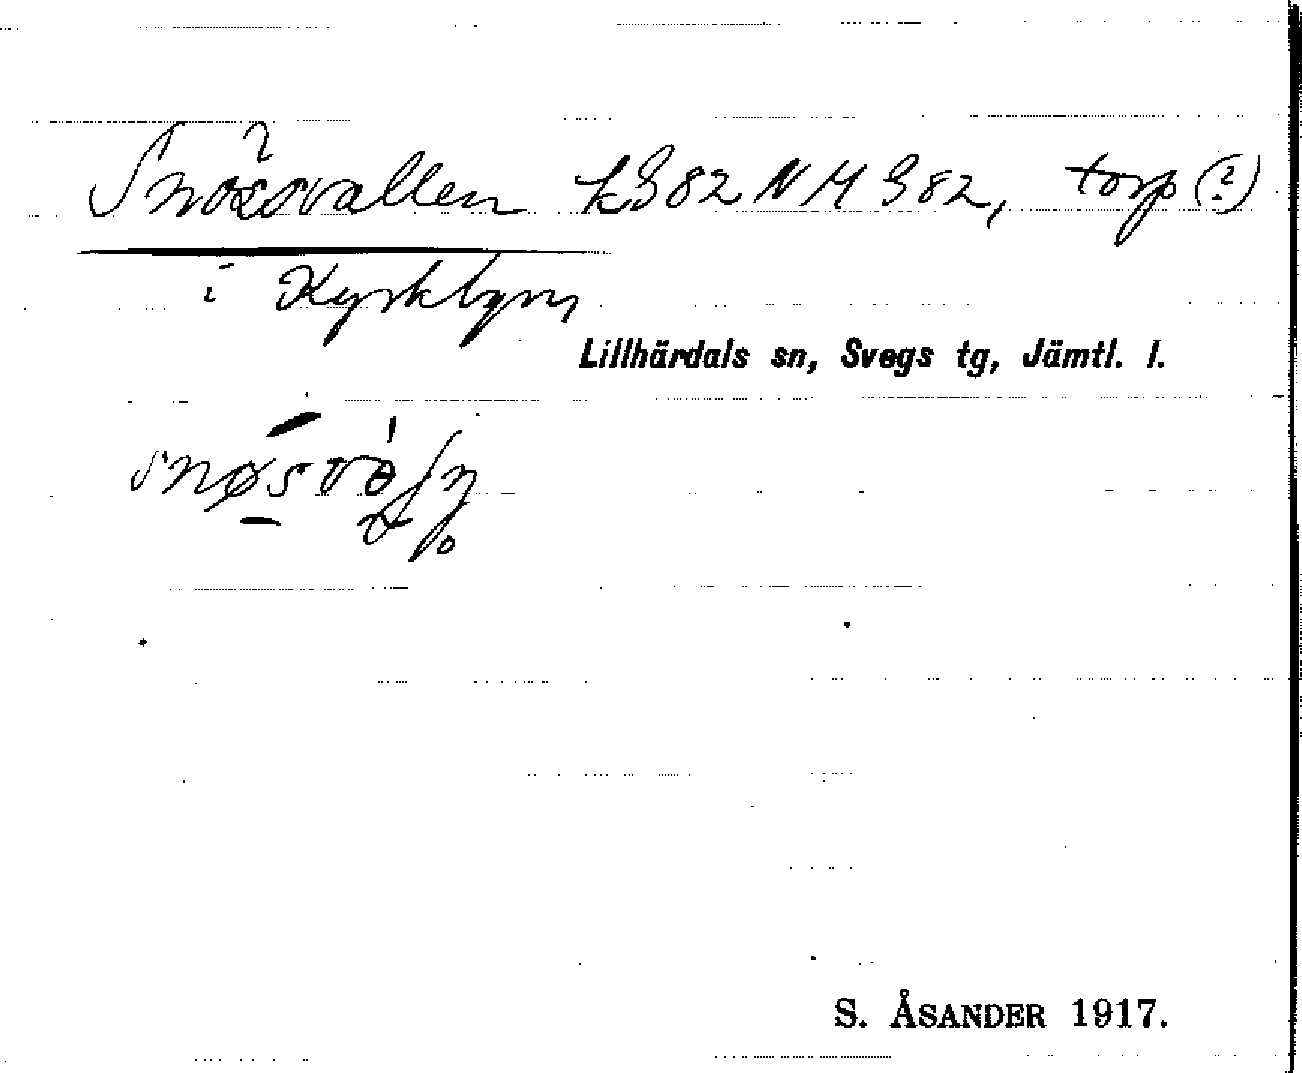 Snösvallen k982 NM 982, torp (?)
i Kyrkbyn
Lillhärdals sn, Svegs tg, Jämtl. l.
S. ÅSANDER 1917.